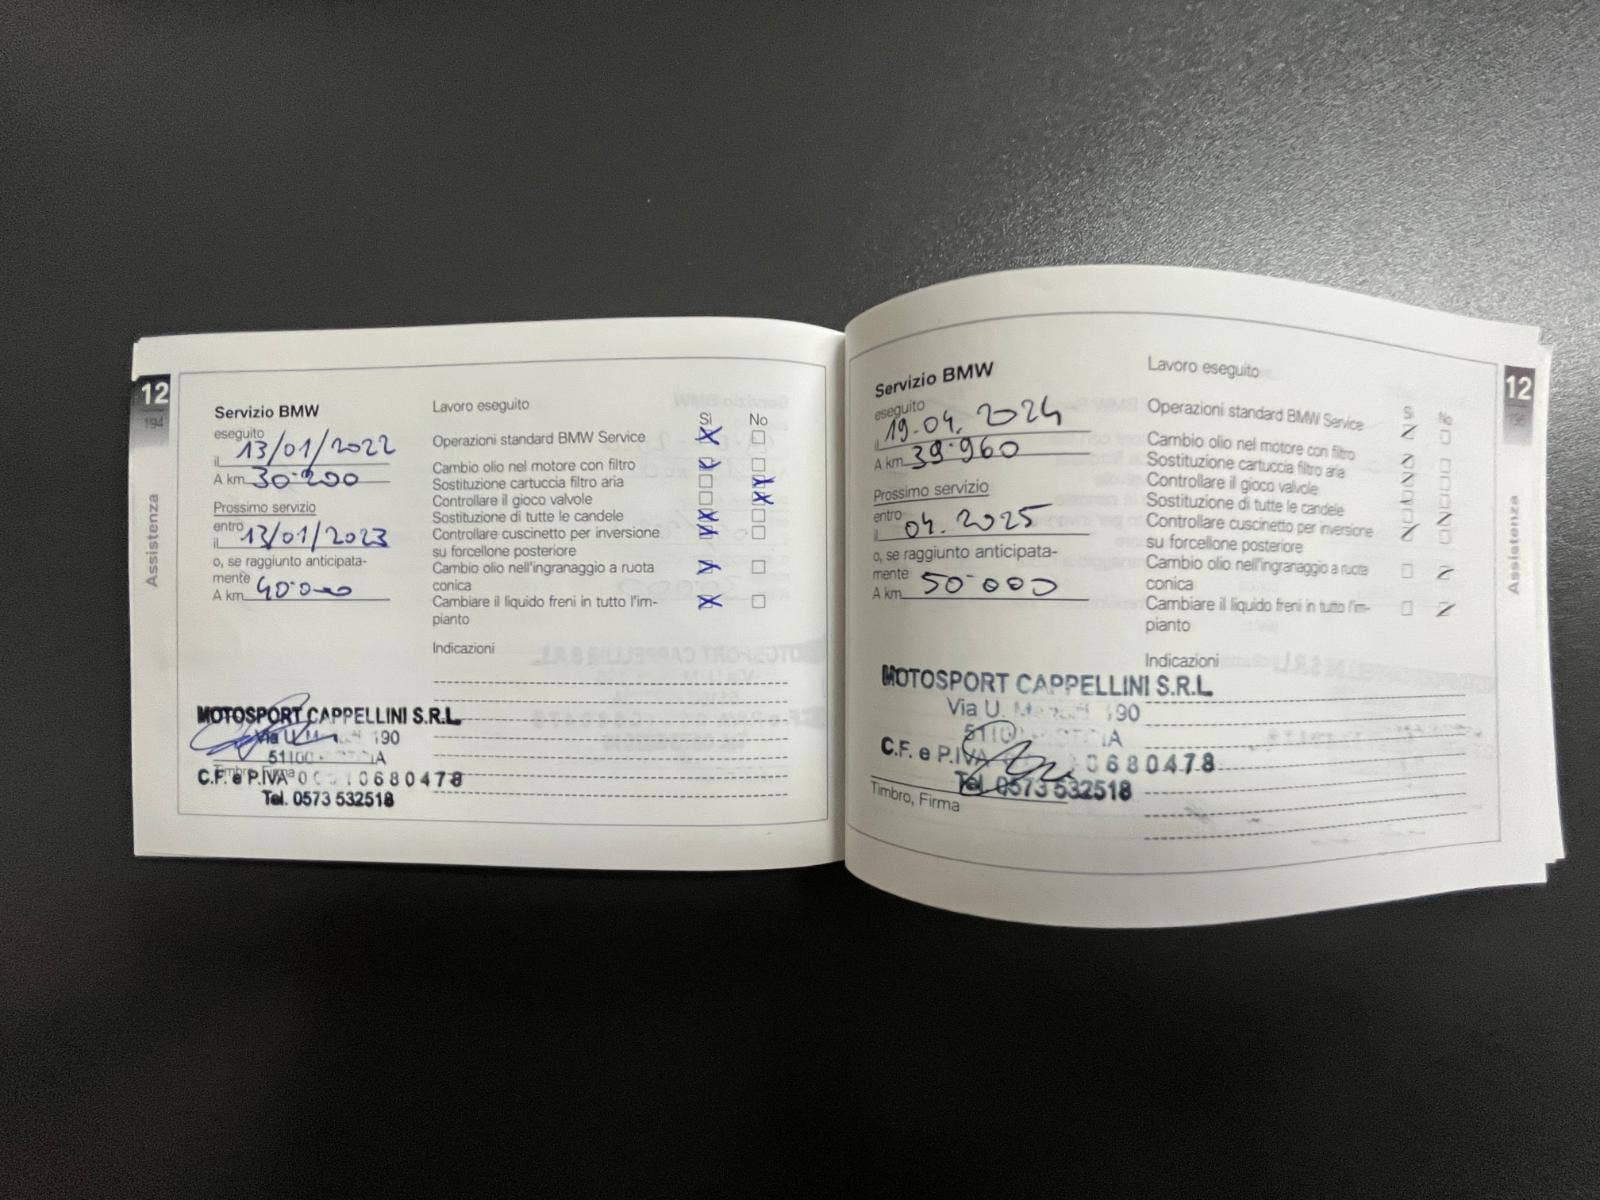 12
194
Assistenza
Servizio BMW
eseguito
il 13/01/2022
A km 30.200
Prossimo servizio
entro
il 13/01/2023
o, se raggiunto anticipata-
mente
A km 40.000
Lavoro eseguito
Sì No
Operazioni standard BMW Service
Cambio olio nel motore con filtro
Sostituzione cartuccia filtro aria
Controllare il gioco valvole
Sostituzione di tutte le candele
Controllare cuscinetto per inversione
su forcellone posteriore
Cambio olio nell'ingranaggio a ruota
conica
Cambiare il liquido freni in tutto l'im-
pianto
Indicazioni
MOTOSPORT CAPPELLINI S.R.L.
Via U. 190
51100
C.F. e P.IVA 0680478
Tel. 0573 532518
12
Assistenza
Servizio BMW
eseguito
il 19.04.2024
A km 39.960
Prossimo servizio
entro
il 04.2025
o, se raggiunto anticipata-
mente
A km 50.000
Lavoro eseguito
Sì No
Operazioni standard BMW Service
Cambio olio nel motore con filtro
Sostituzione cartuccia filtro aria
Controllare il gioco valvole
Sostituzione di tutte le candele
Controllare cuscinetto per inversione
su forcellone posteriore
Cambio olio nell'ingranaggio a ruota
conica
Cambiare il liquido freni in tutto l'im-
pianto
Indicazioni
MOTOSPORT CAPPELLINI S.R.L.
Via U. 190
51100
C.F. e P.IVA 0680478
Tel. 0573 532518
Timbro, Firma